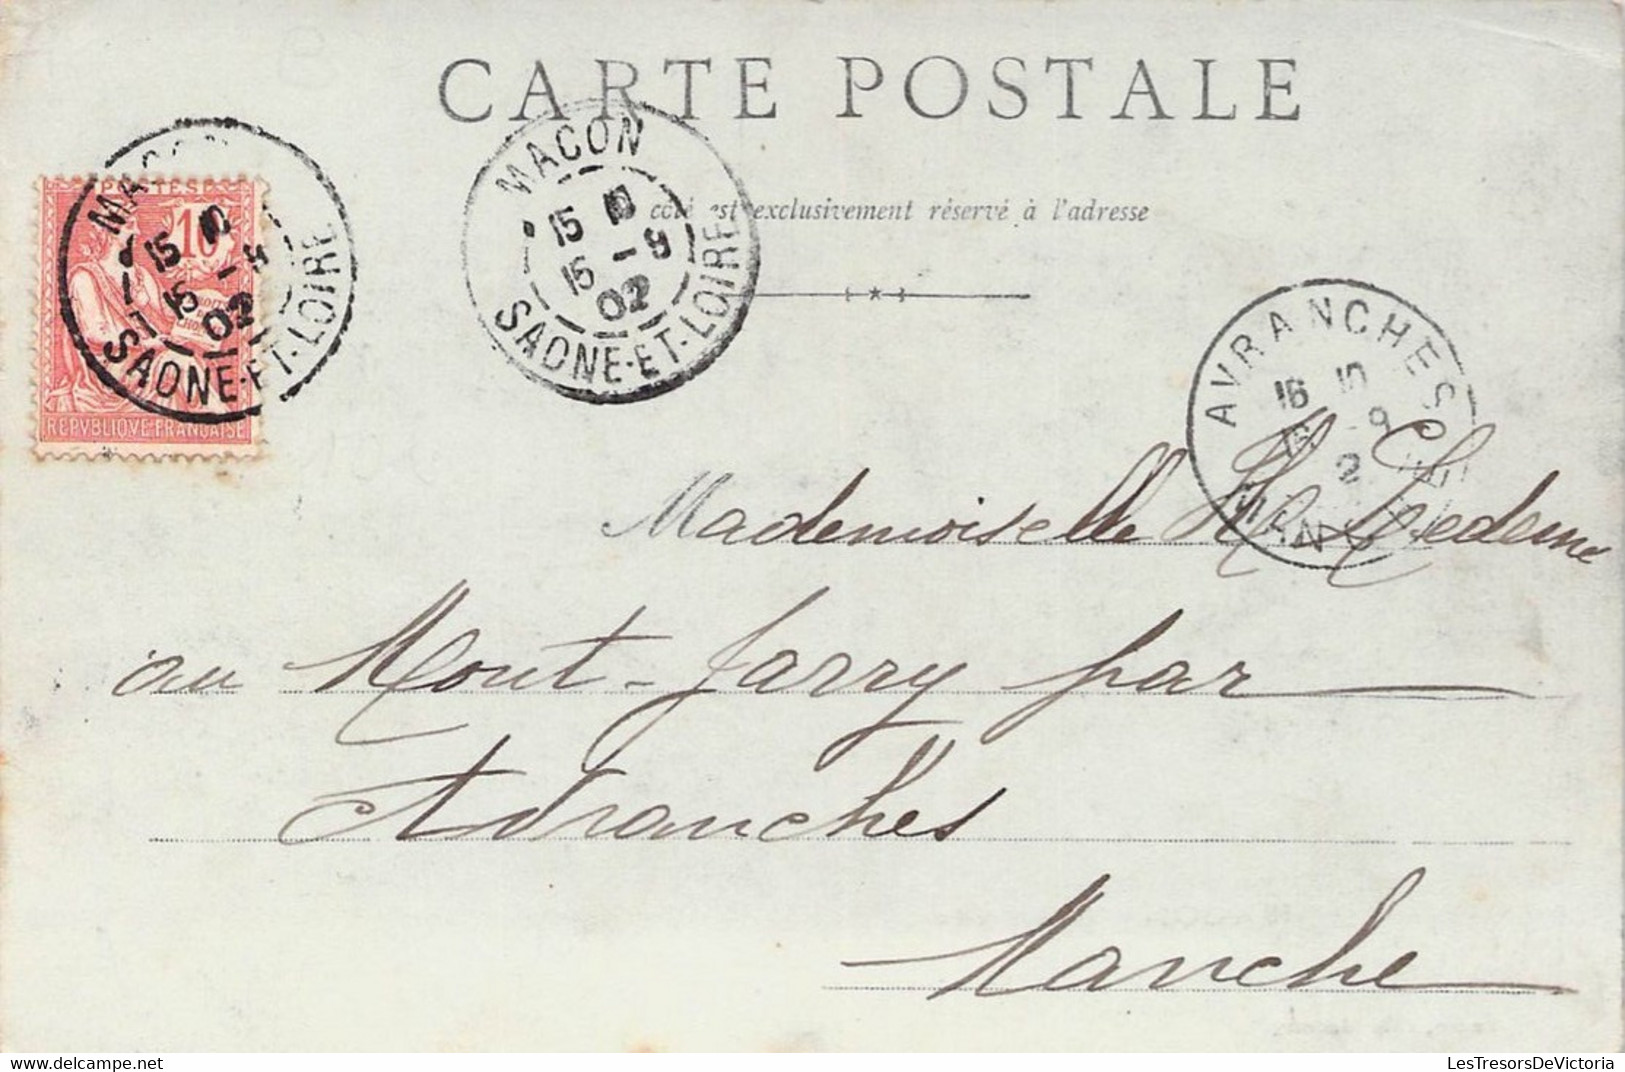 CARTE POSTALE
côté est exclusivement réservé à l'adresse
POSTES
10
REPVBLIQVE FRANÇAISE
MACON
15 10
15 -9
02
SAONE-ET-LOIRE
MACON
15 10
15 -9
02
SAONE-ET-LOIRE
AVRANCHES
16 10
9
2
MANCHE
Mademoiselle
au Mont-Jarry par
Avranches
Manche
LesTresorsDeVictoria